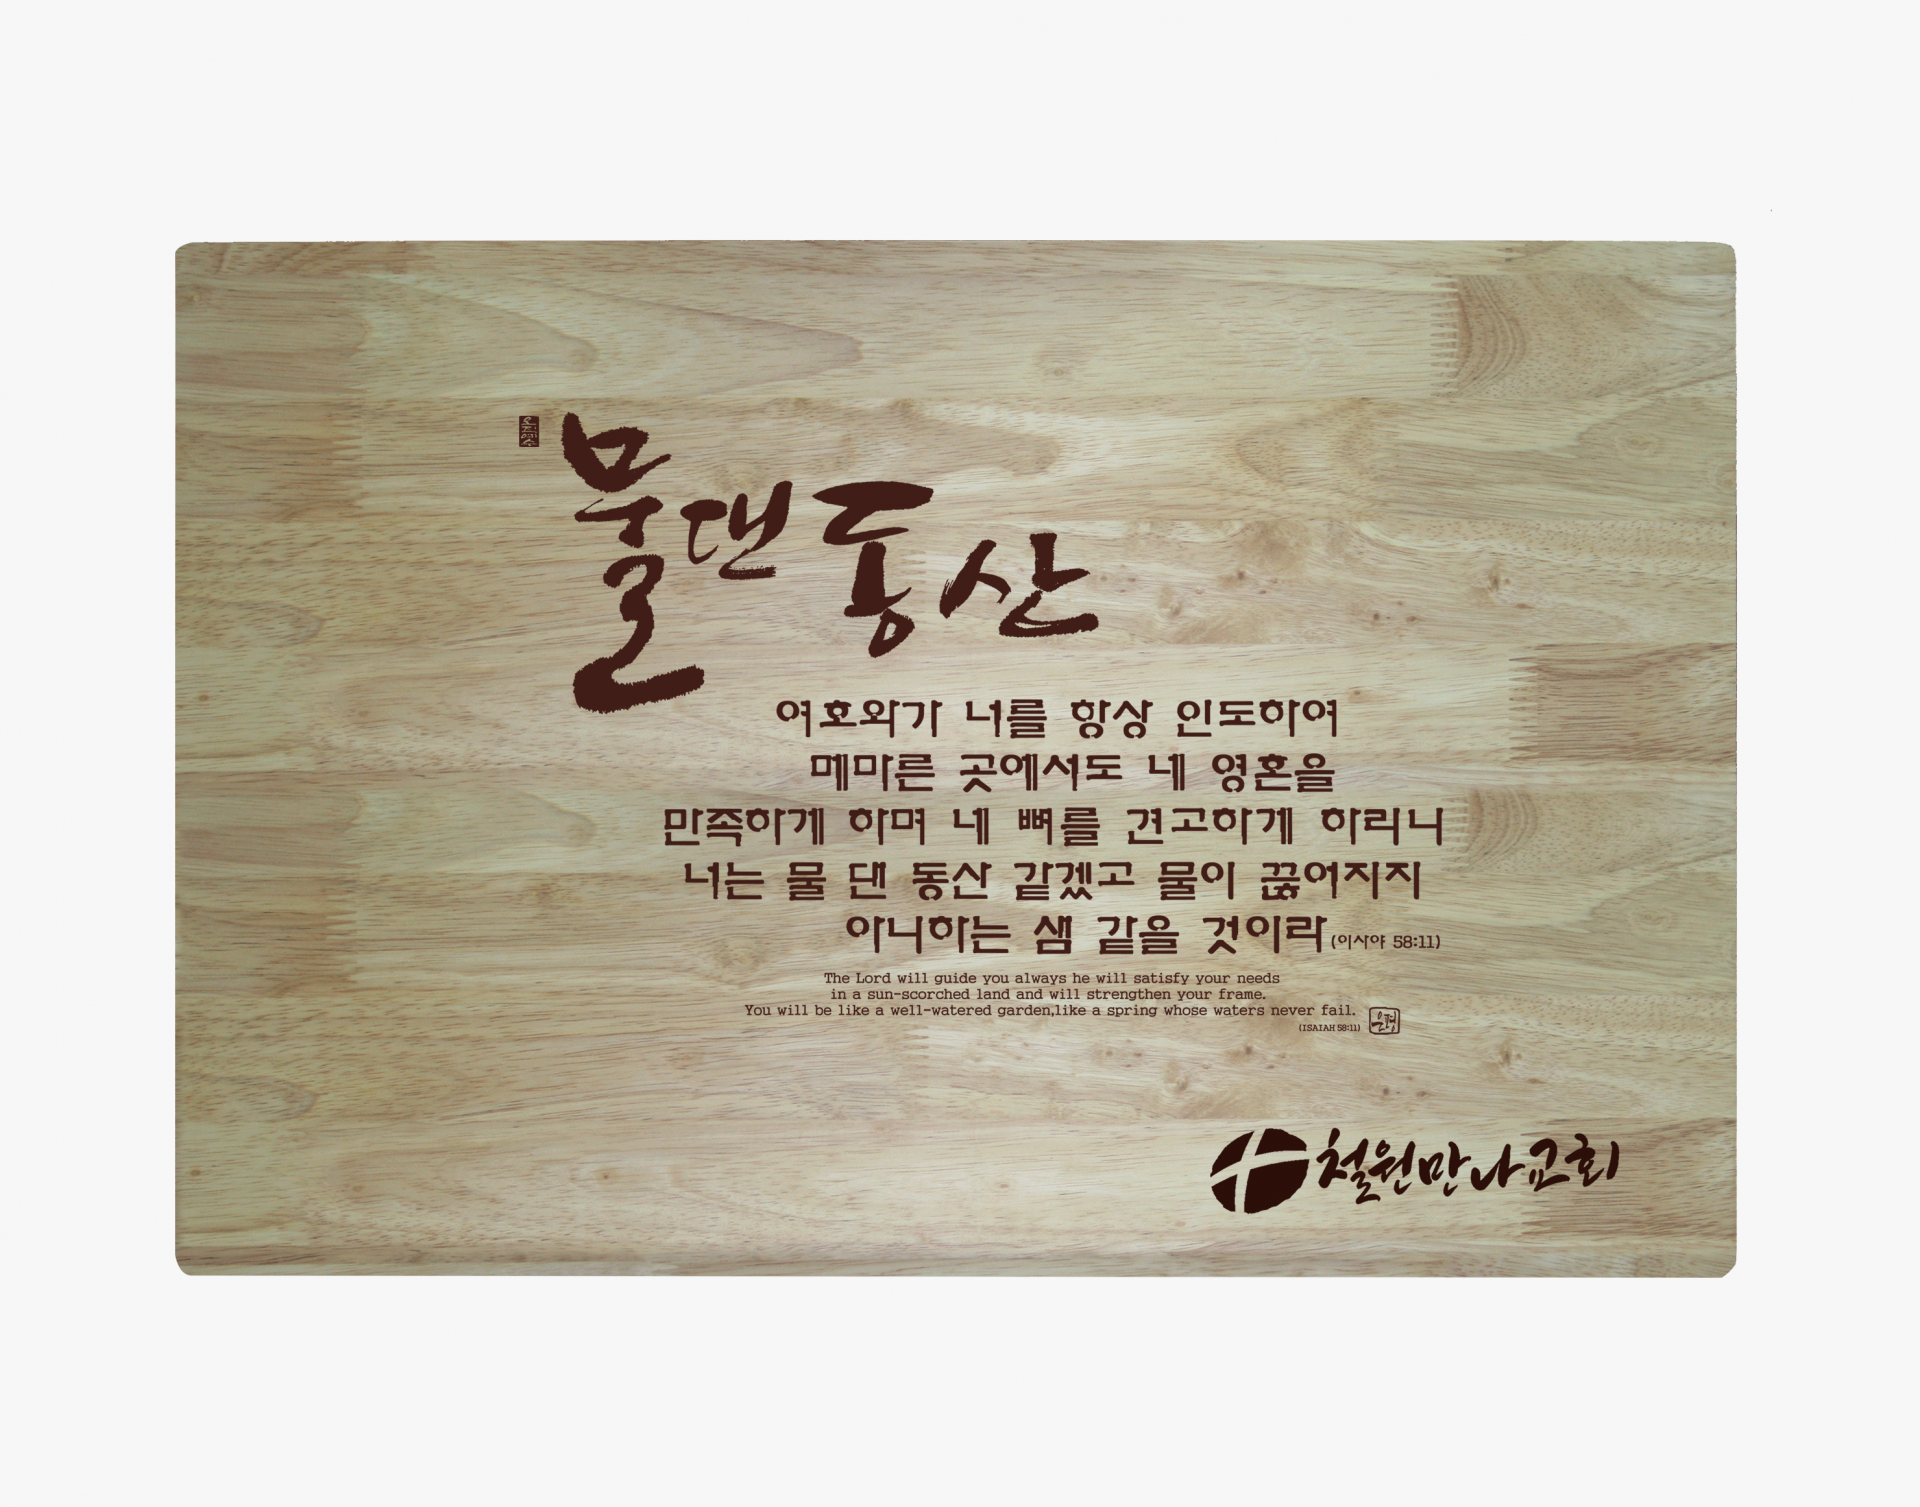 오직예수
물댄동산
여호와가 너를 항상 인도하여
메마른 곳에서도 네 영혼을
만족하게 하며 네 뼈를 견고하게 하리니
너는 물 댄 동산 같겠고 물이 끊어지지
아니하는 샘 같을 것이라 (이사야 58:11)
The Lord will guide you always he will satisfy your needs
in a sun-scorched land and will strengthen your frame.
You will be like a well-watered garden,like a spring whose waters never fail.
(ISAIAH 58:11)
은평
철원만나교회